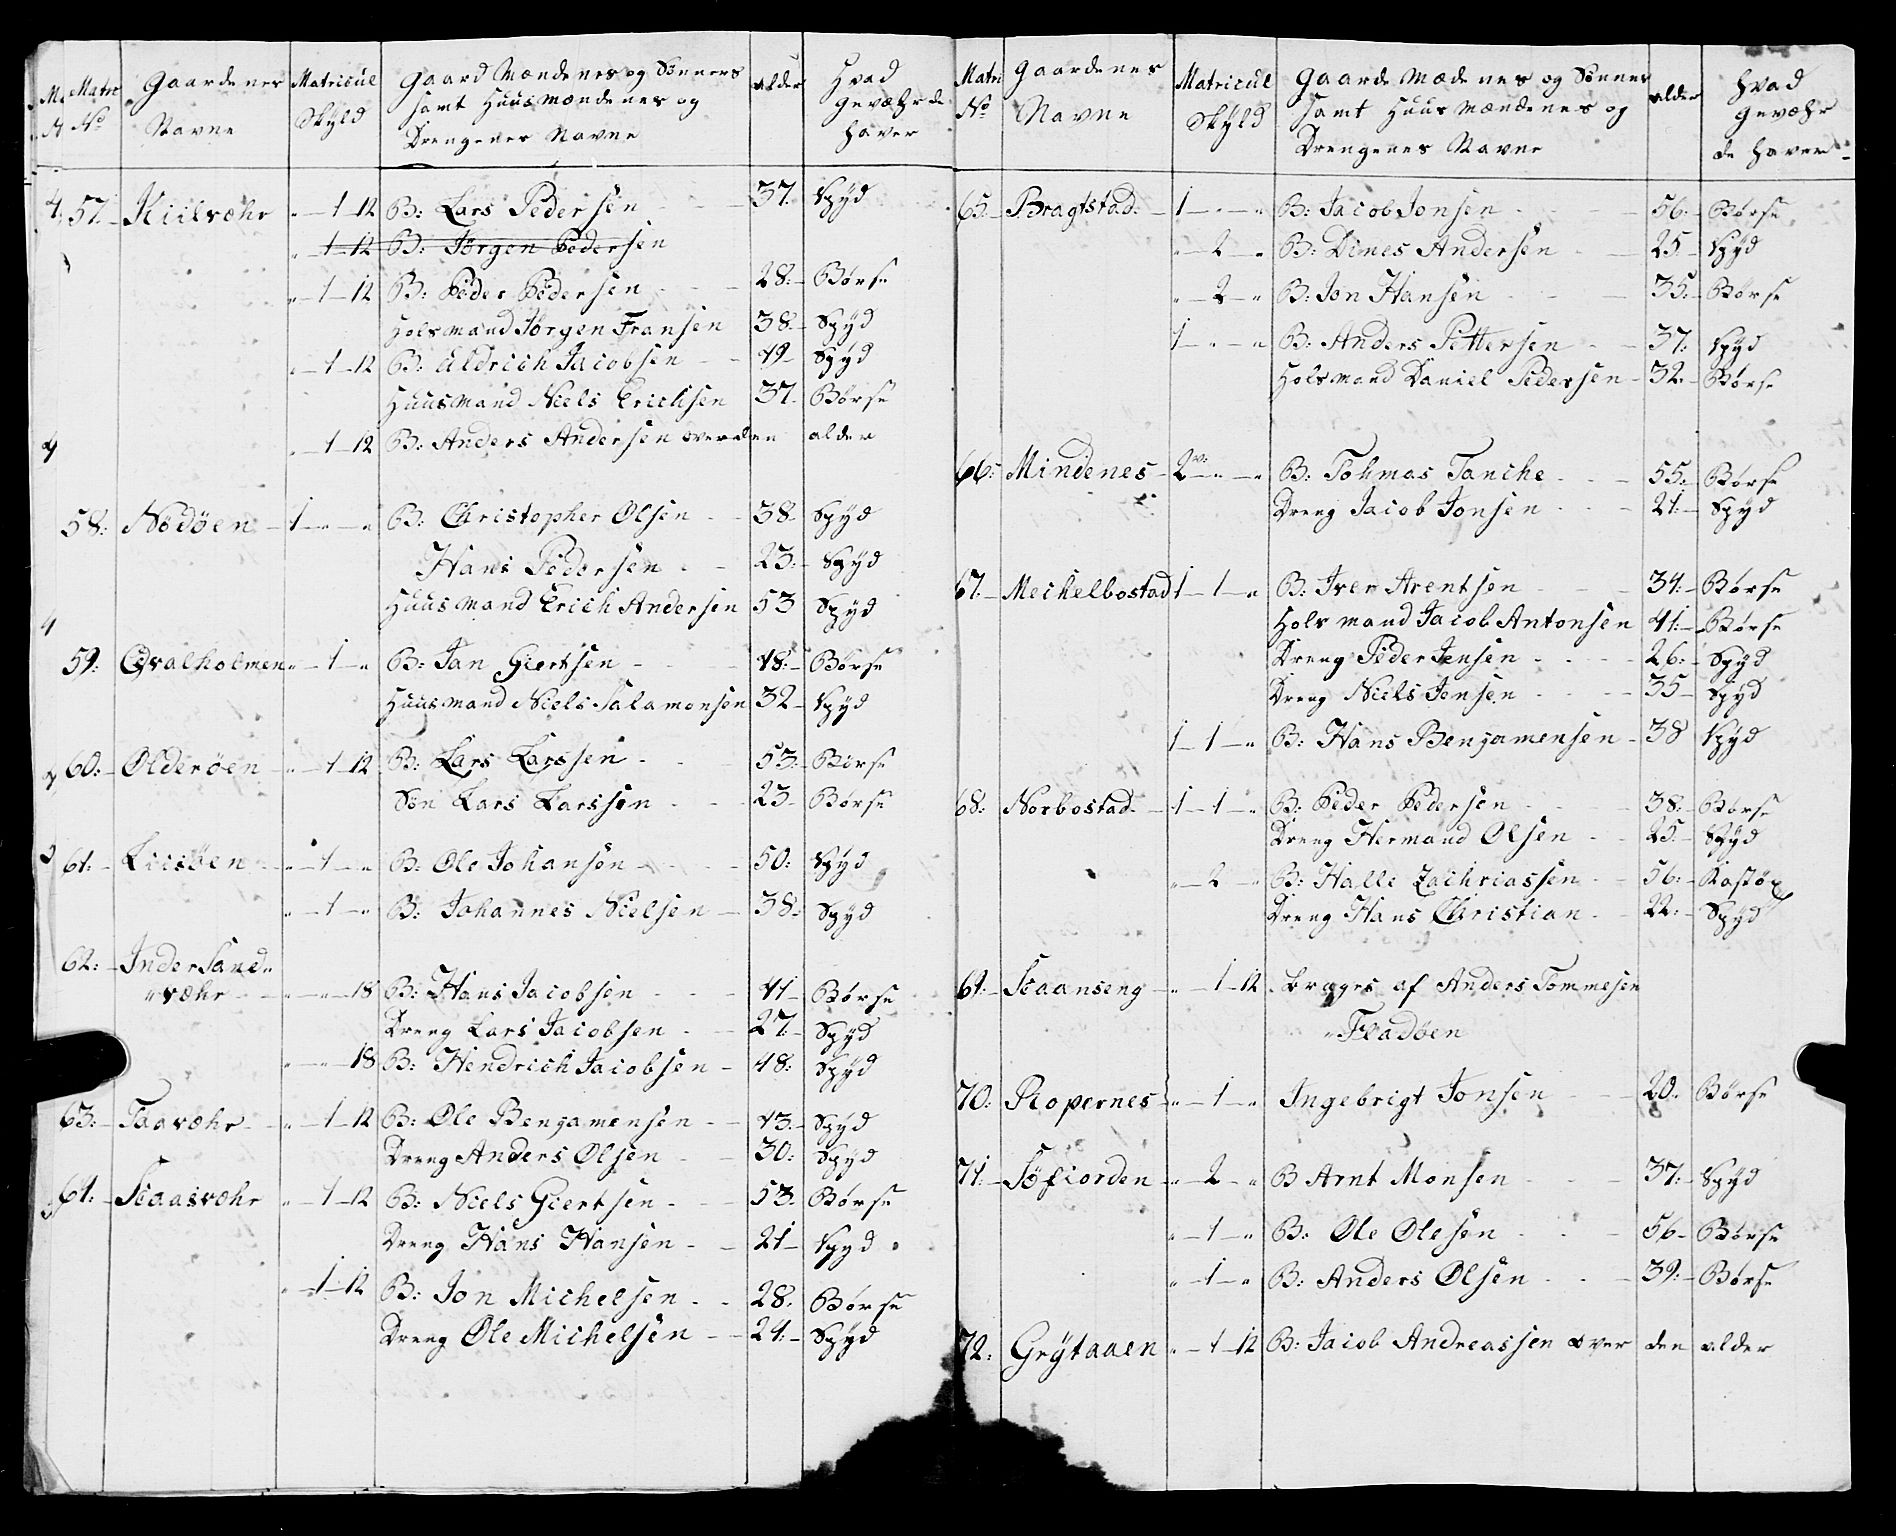 Matr No Gaardenes Navne Matricul Skyld Gaard Mændenes og Sønners samt Huusmændenes og Drengenes Navne alder Hvad gevæhr de haver
57. Kiilvæhr „ — 1 — 12 B: Lars Pedersen 37. Spyd
„ 1 — 12 B: Jørgen Pedersen
„ — 1 — 12 B: Peder Pedersen 28: Børse
Holsmand Jørgen Fransen 38. Spyd
„ — 1 — 12 B: Aldrich Jacobsen 49 Spyd
Huusmand Niels Erichsen 37. Børse
„ — 1 — 12 B: Anders Andersen over den alder
58: Nødøen 1 — „ — „ B: Christopher Olsen 38 Spyd
Hans Pedersen 23: Spyd
Huusmand Erich Andersen 53 Spyd
59: Qvalholmen „ — 1 — „ B: Jan Giertsen 48: Børse
Huusmand Niels Salamonsen 32 Spyd
60: Olderøen „ — 1 — 12 B: Lars Larssen 53: Børse
Søn Lars Larssen 23 Børse
61: Liisøen „ — 1 — „ B: Ole Johansen 50: Spyd
„ — 1 — „ B: Johannes Nielsen 38: Spyd
62: Inder Sand-
„væhr „ — „ — 18 B: Hans Jacobsen 41 Børse
Dreng Lars Jacobsen 27. Spyd
„ — „ — 18 B: Hendrich Jacobsen 48: Spyd
63: Taavæhr „ — 1 — 12 B: Ole Bengamensen 43 Spyd
Dreng Anders Olsen 30: Spyd
64: Skaasvæhr „ — 1 — 12 B: Niels Giertsen 53. Børse
Dreng Hans Hansen 21 Spyd
„ — 1 — 12 B: Jon Michelsen 28. Børse
Dreng Ole Michelsen 24: Spyd
Matr No Gaardenes Navne Matricul Skyld Gaarde Mædenes og Sønnes samt Huusmændenes og Drengenes Navne alder Hvad gevæhr de haver
65. Bragtstad 1 — „ — „ B: Jacob Jonsen 56. Børse
„ — 2 — „ B: Dines Andersen 25 Spyd
„ — 2 — „ B: Jon Hansen 35: Børse
1 — „ — „ B: Anders Pettersen 37: Spyd
Holsmand Daniel Pedersen 32. Børse
66: Mindenes 2 — „ — „ B: Tohmas Tanche 55: Børse
Dreng Jacob Jonsen 21: Spyd
67. Meichelbostad 1 — 1 — „ B: Iver Arentsen 34: Børse
Holsmand Jacob Antonsen 41: Børse
Dreng Peder Jensen 26: Spyd
Dreng Niels Jensen 35 Spyd
1 — 1 — „ B: Hans Bengamensen 38 Spyd
68: Norbostad 1 — 1 — „ B: Peder Pedersen 38: Børse
Dreng Hermand Olsen 25. Spyd
„ — 2 — „ B: Halle Zachriassen 56: Kastøx
Dreng Hans Christian 22: Spyd
69: Skaanseng „ — 1 — 12 Bruges af Anders Tommesen
„Fladøen
70: Ropernes „ — 1 — „ Ingebrigt Jonsen 20. Børse
71. Søfiorden „ — 2 — „ B Arnt Monsen 37: Spyd
„ — 1 — „ B: Ole Olesen 56 Børse
„ — 1 — „ B: Anders Olsen 39: Børse
72. Grÿtaaen „ — 1 — 12 B: Jacob Andreassen over den alder